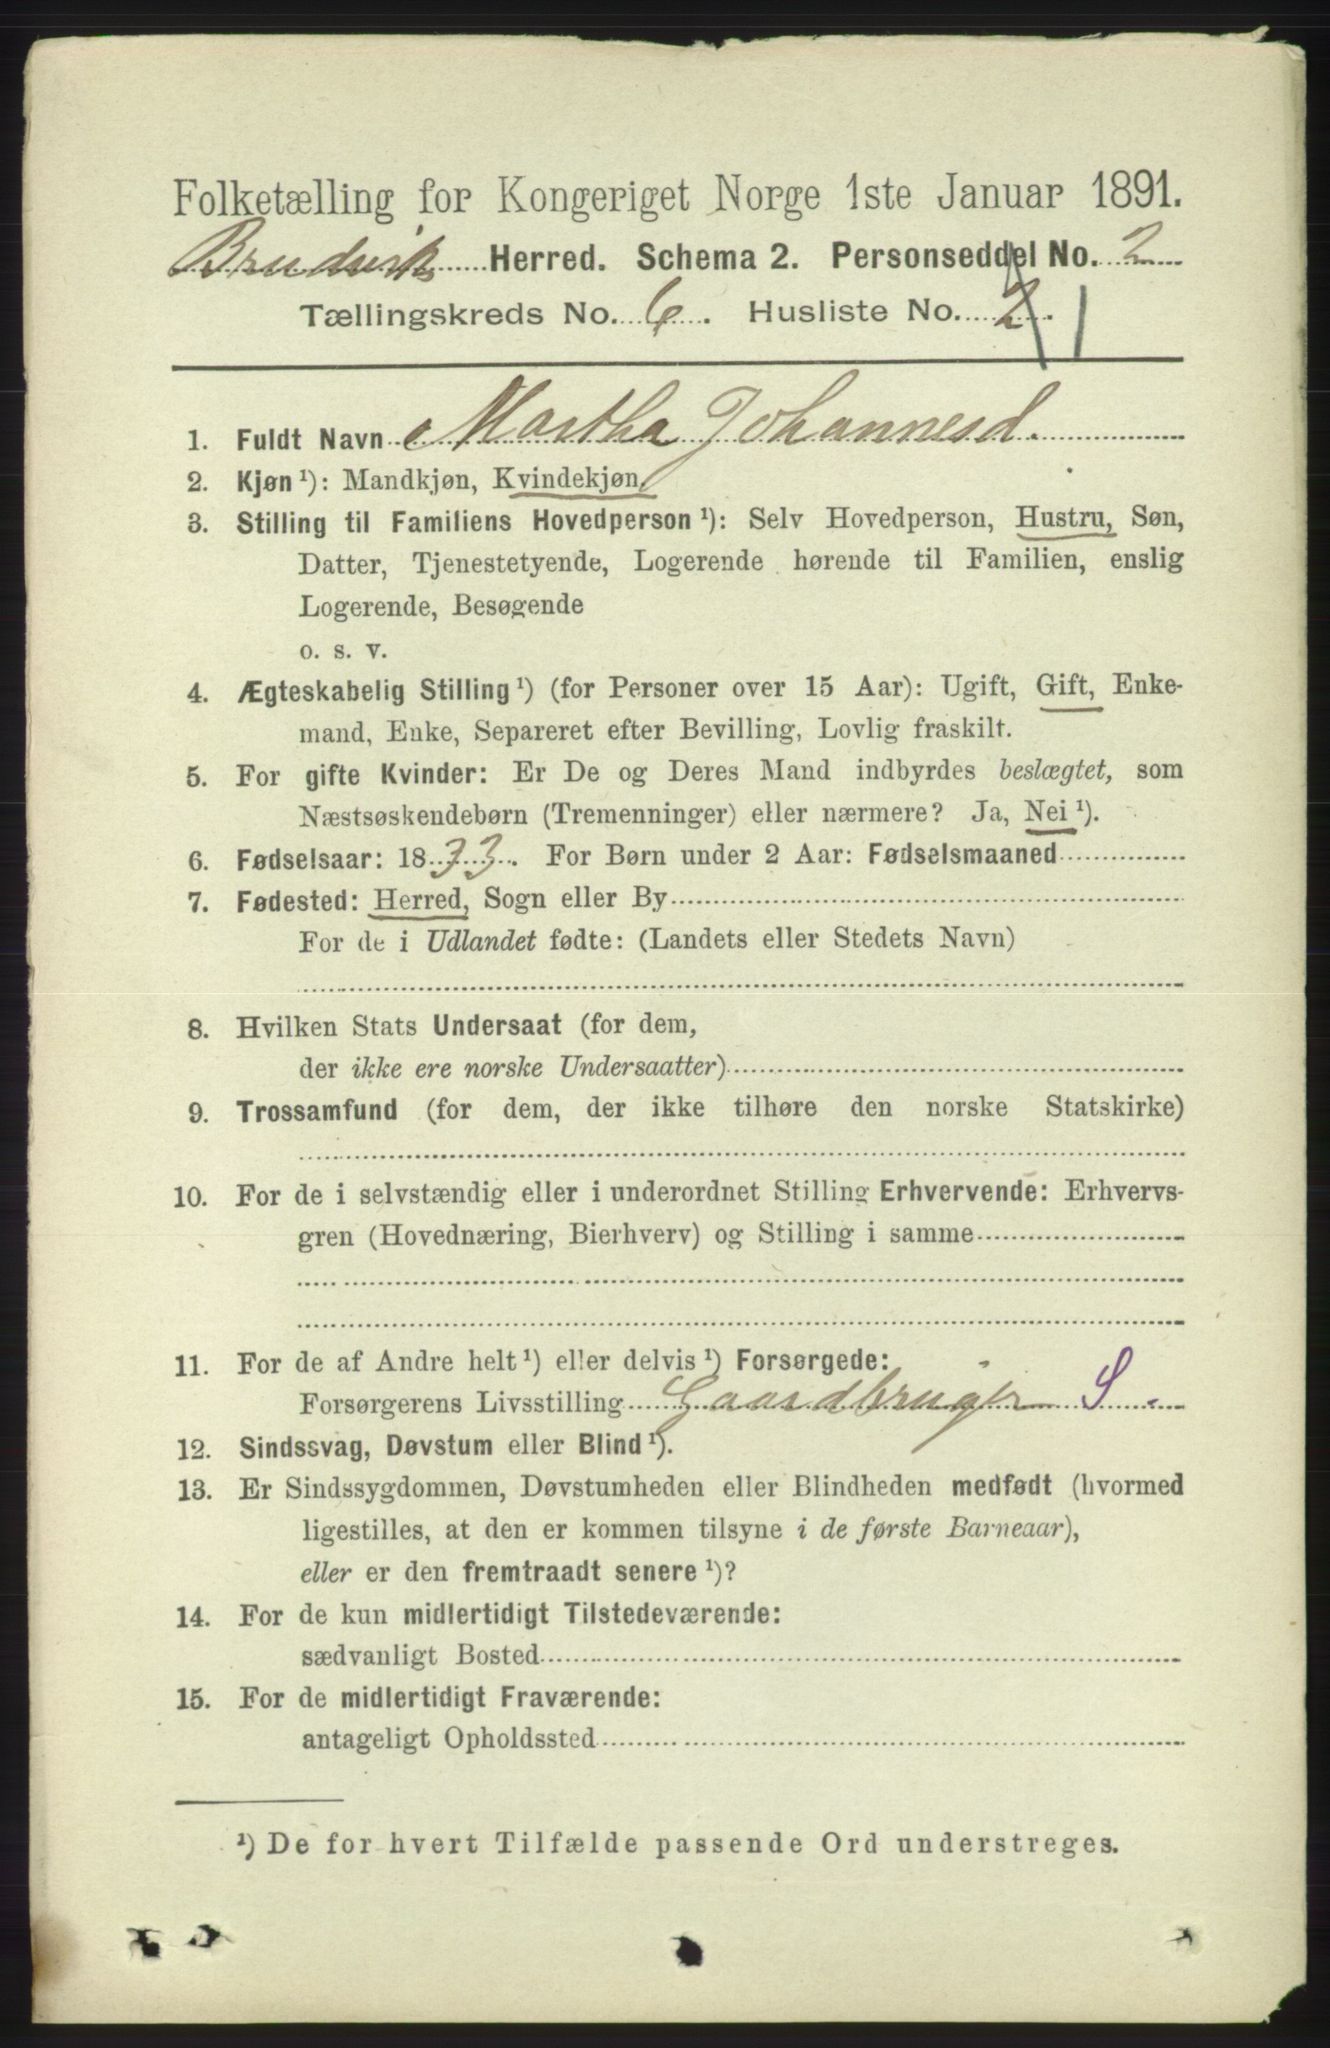 Folketælling for Kongeriget Norge 1ste Januar 1891.
Brudvik Herred. Schema 2. Personseddel No. 2
Tællingskreds No. 6. Husliste No. 2. 1
1. Fuldt Navn Martha Johannesd.
2. Kjøn ¹): Mandkjøn, Kvindekjøn.
3. Stilling til Familiens Hovedperson ¹): Selv Hovedperson, Hustru, Søn,
Datter, Tjenestetyende, Logerende hørende til Familien, enslig
Logerende, Besøgende
o. s. v.
4. Ægteskabelig Stilling ¹) (for Personer over 15 Aar): Ugift, Gift, Enke-
mand, Enke, Separeret efter Bevilling, Lovlig fraskilt.
5. For gifte Kvinder: Er De og Deres Mand indbyrdes beslægtet, som
Næstsøskendebørn (Tremenninger) eller nærmere? Ja, Nei ¹).
6. Fødselsaar: 1833. For Børn under 2 Aar: Fødselsmaaned
7. Fødested: Herred, Sogn eller By
For de i Udlandet fødte: (Landets eller Stedets Navn)
8. Hvilken Stats Undersaat (for dem,
der ikke ere norske Undersaatter)
9. Trossamfund (for dem, der ikke tilhøre den norske Statskirke)
10. For de i selvstændig eller i underordnet Stilling Erhvervende: Erhvervs-
gren (Hovednæring, Bierhverv) og Stilling i samme
11. For de af Andre helt ¹) eller delvis ¹) Forsørgede:
Forsørgerens Livsstilling Gaardbruger S
12. Sindssvag, Døvstum eller Blind ¹).
13. Er Sindssygdommen, Døvstumheden eller Blindheden medfødt (hvormed
ligestilles, at den er kommen tilsyne i de første Barneaar),
eller er den fremtraadt senere ¹)?
14. For de kun midlertidigt Tilstedeværende:
sædvanligt Bosted
15. For de midlertidigt Fraværende:
antageligt Opholdssted
¹) De for hvert Tilfælde passende Ord understreges.